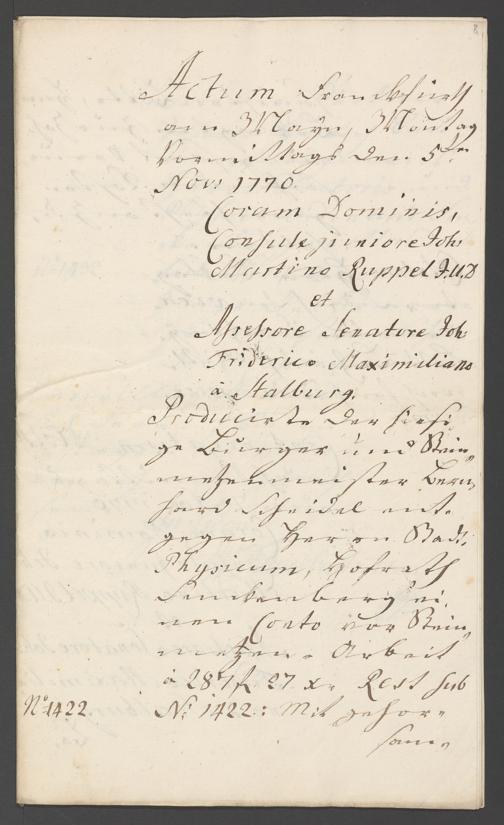 8
Actum Franckfurth
am Mayn, Montag
Vormittags den 5ten
Nov: 1770
Coram Dominis,
Consule juniore Joh:
Martino Ruppel J.U.D
et
Assessore Senatore Joh:
Friderico Maximiliano
à Stalburg.
Producirte der hiesi-
ge Burger und Stein-
metzenmeister Bern-
hard Scheidel ent-
gegen Herrn Stadt-
Physicum, Hofrath
Senckenberg ei-
nen Conto vor Stein-
metzen-Arbeit
à 287 f 27 x. Rest sub
No: 1422: Mit gehor-
sam-
No: 1422